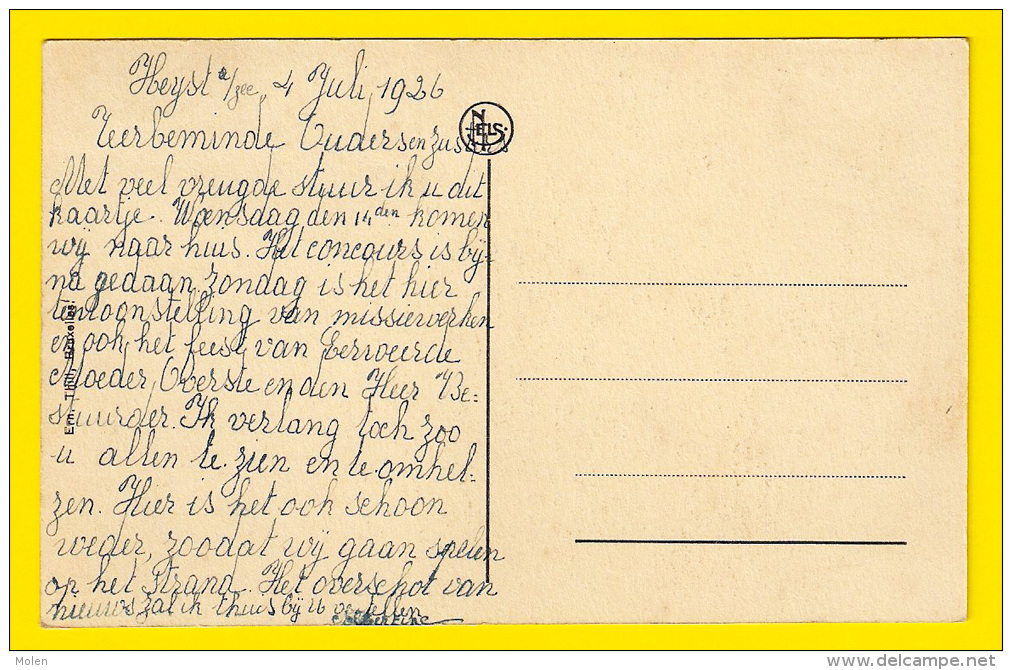 Heyst a/zee, 4 Juli, 1926
Zeerbeminde Ouders en zusters
NELS
Met veel vreugde stuur ik u dit
kaartje. Woensdag den 14den komen
wij naar huis. Het concours is bij-
na gedaan. zondag is het hier
tentoonstelling van missiewerken
en ook het feest van Eerweerde
Moeder, Overste en den Heer Be-
stuurder. Ik verlang toch zoo
u allen te zien en te omhel-
zen. Hier is het ook schoon
weder, zoodat wij gaan spelen
op het strand. Het overschot van
nieuws zal ik thuis bij U vertellen
Albertine
Ern. Thill, Bruxelles.
Molen
delcampe.net